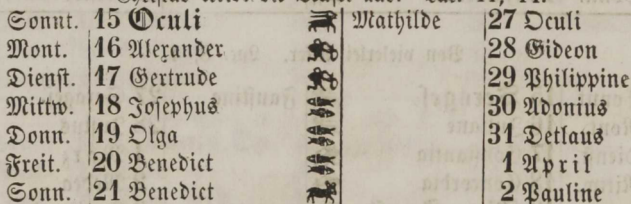 Sonnt. 15 Oculi Mathilde 27 Oculi
Mont. 16 Alexander 28 Gideon
Dienst. 17 Gertrude 29 Philippine
Mittw. 18 Josephus 30 Adonius
Donn. 19 Olga 31 Detlaus
Freit. 20 Benedict 1 April
Sonn. 21 Benedict 2 Pauline